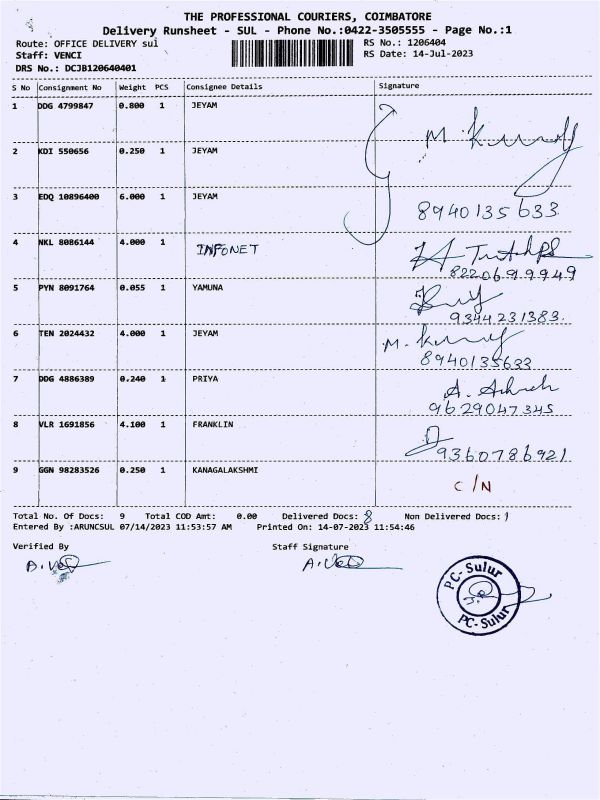 THE PROFESSIONAL COURIERS, COIMBATORE
Delivery Runsheet - SUL - Phone No.:0422-3505555 - Page No.:1
Route: OFFICE DELIVERY sul RS No.: 1206404
Staff: VENCI RS Date: 14-Jul-2023
DRS No.: DCJB120640401
S No Consignment No Weight PCS Consignee Details Signature
1 DDG 4799847 0.800 1 JEYAM
2 KDI 550656 0.250 1 JEYAM
3 EDQ 10896400 6.000 1 JEYAM 8940135633
4 NKL 8086144 4.000 1 INFONET
8220699949
5 PYN 8091764 0.055 1 YAMUNA
9344231383.
6 TEN 2024432 4.000 1 JEYAM
8940135633
7 DDG 4886389 0.240 1 PRIYA
9629047345
8 VLR 1691856 4.100 1 FRANKLIN
9360786921
9 GGN 98283526 0.250 1 KANAGALAKSHMI C/N
Total No. Of Docs: 9 Total COD Amt: 0.00 Delivered Docs: 8 Non Delivered Docs: 1
Entered By :ARUNCSUL 07/14/2023 11:53:57 AM Printed On: 14-07-2023 11:54:46
Verified By Staff Signature
PC-Sulur
PC-Sulur